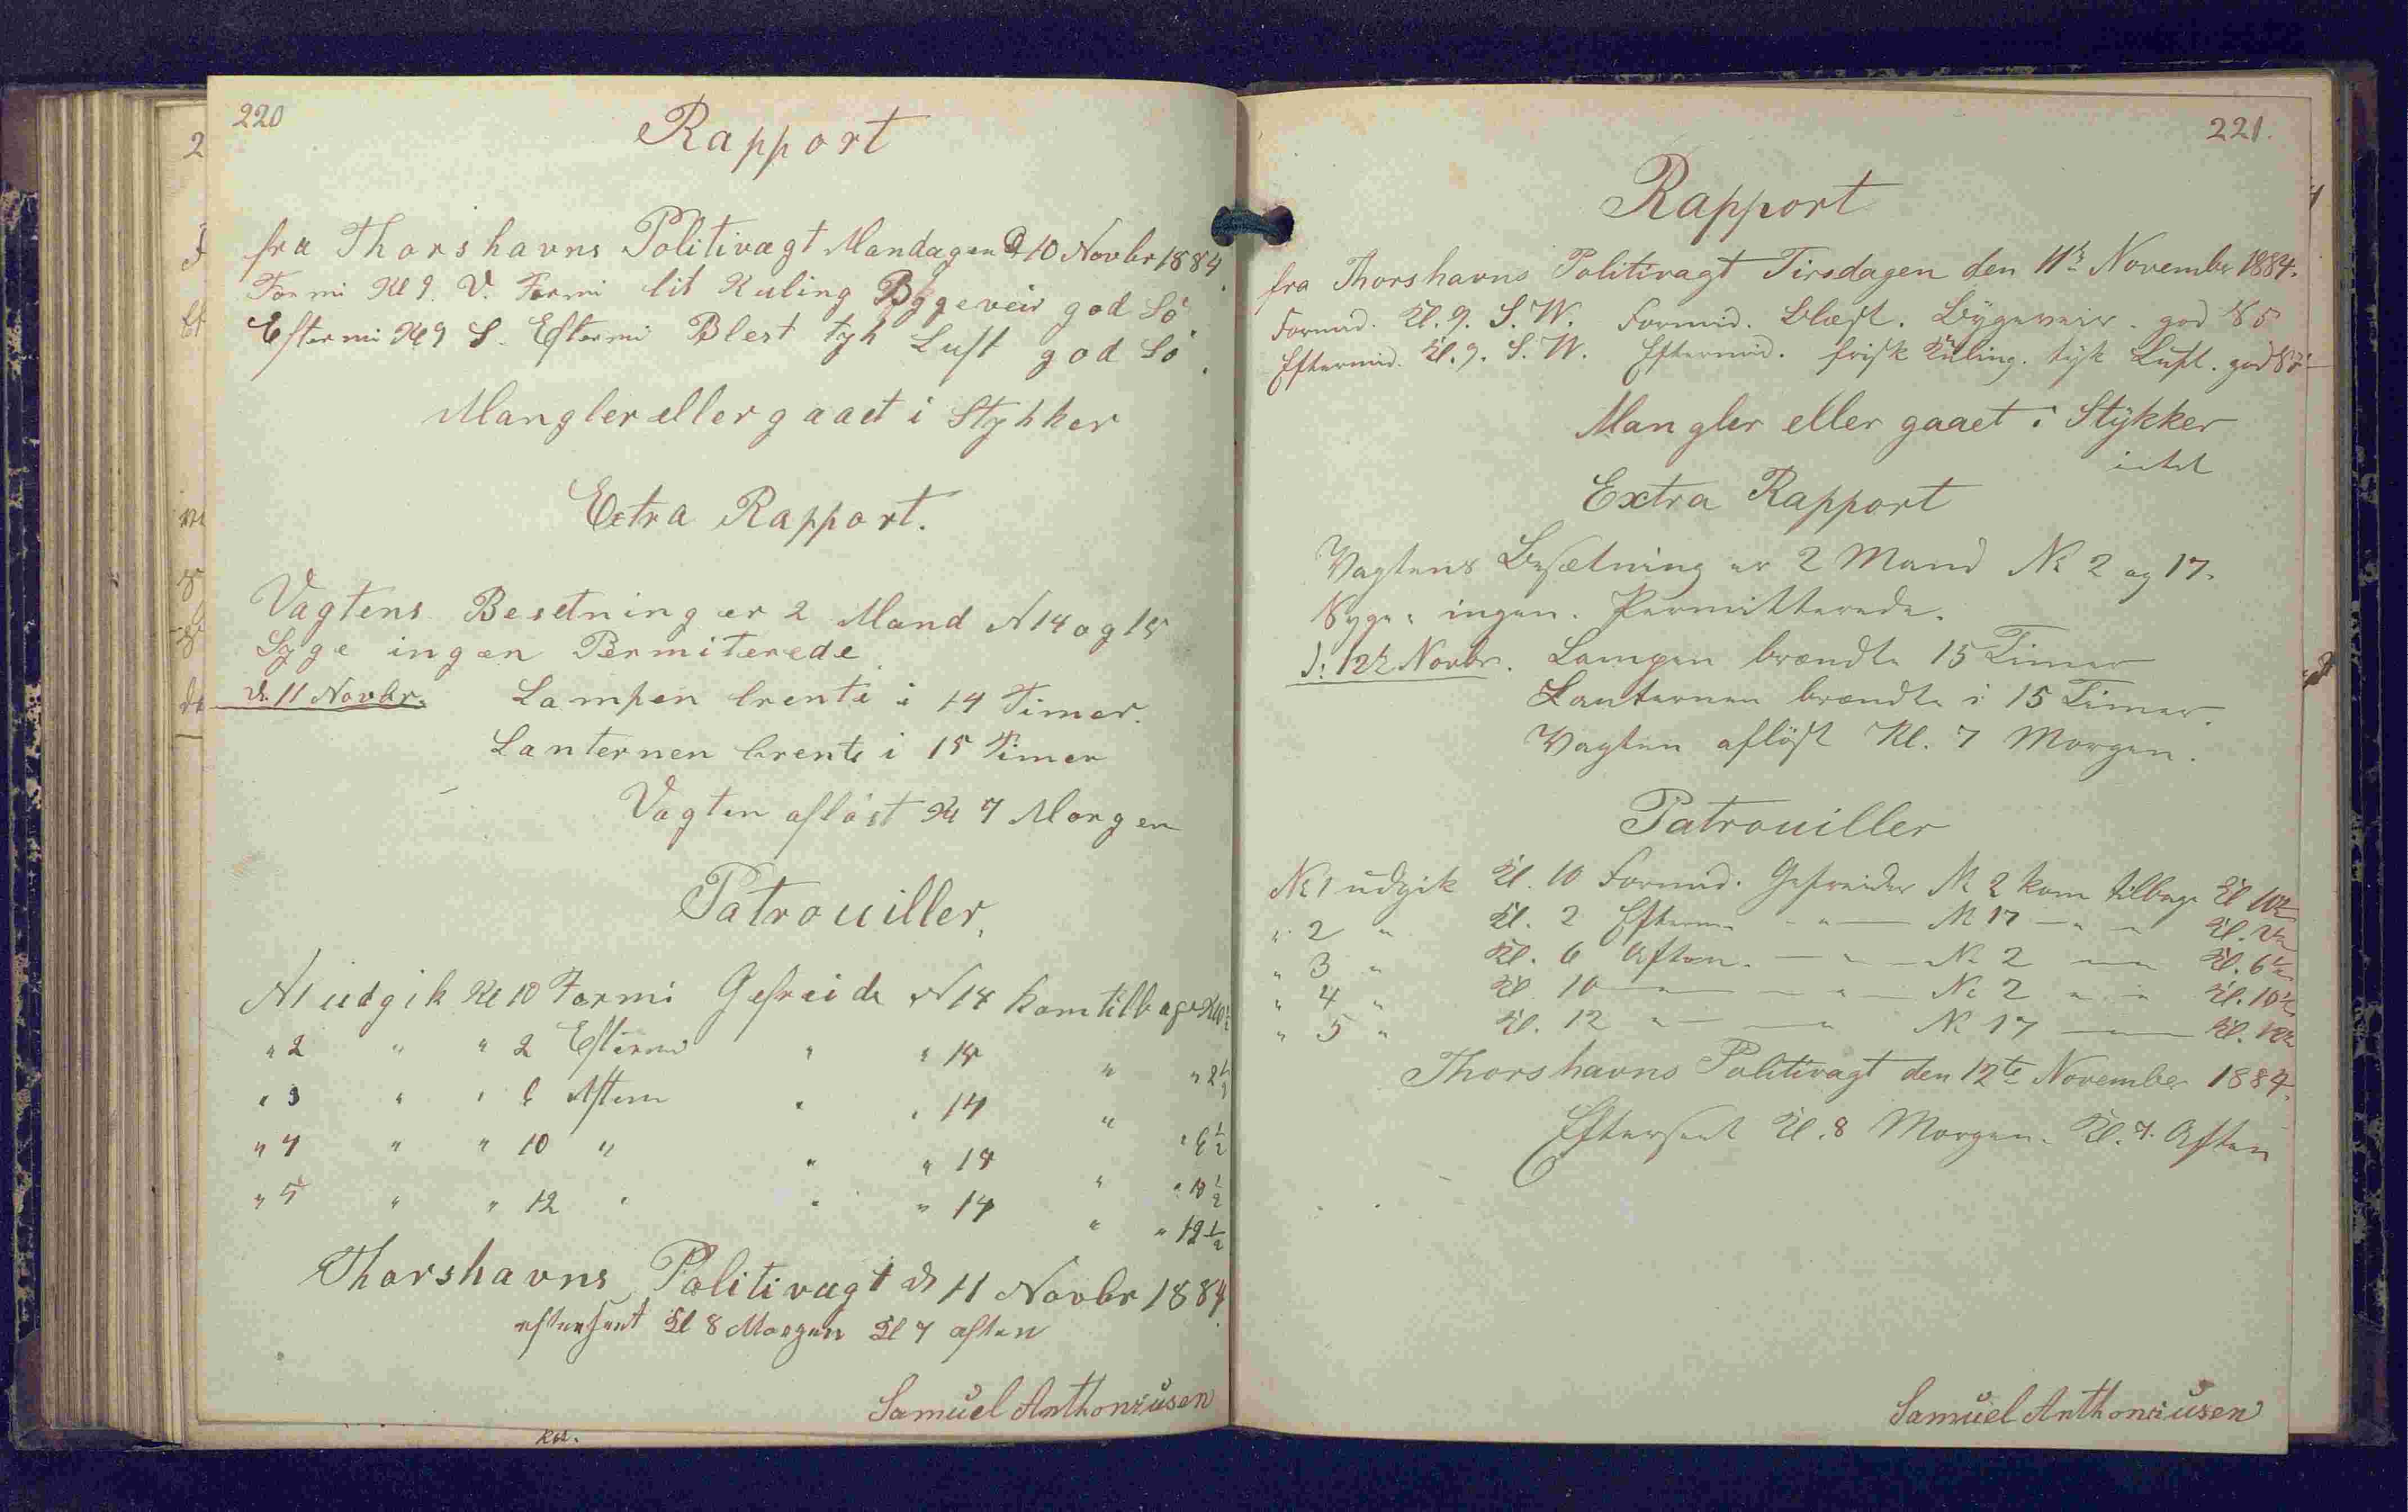 220
Rapport
fra Thorshavns Politivagt Mandagen D 10 Novbr 1884.
Formi Kl 9. V. Formi lit Kuling Byggeveir god Sö
Eftermi Kl 9 S. Eftermi Blest tyk Luft god Sö.
Mangler eller gaaet i Stykker
Extra Rapport.
Vagtens Besetning er 2 Mand N 14 og 18
Syge ingen Permiterede
d. 11 Novbr. Lampen brente i 14 Timer.
Lanternen brente i 15 Timer
Vagten aflöst Kl 7 Morgen
Patrouiller,
N1 udgik Kl 10 Formi Gefreide N 18 kom tilbage Kl 10½
" 2 " " 2 Eftermi " " 18 " " 2½
" 3 " " 6 Aften " " 14 " " 6½
" 4 " " 10 " " " 18 " " 10½
" 5 " " 12 " " " 14 " " 12½
Thorshavns Politivagt d 11 Novbr 1884
eftersent Kl 8 Morgen Kl 7 aften
Samuel Anthoniusen
221.
Rapport
fra Thorshavns Politivagt Tirsdagen den 11te November 1884.
Formid. Kl. 9. S. W. Formid. Blæst. Bygeveir. god Sö
Eftermid. Kl. 9. S. W. Eftermid. frisk Kuling. tyk Luft. god Sö
Mangler eller gaaet i Stykker
intet
Extra Rapport
Vagtens Besætning er 2 Mand No 2 og 17.
Syge: ingen. Permitterede.
d: 12te Novbr. Lampen brændte 15 Timer
Lanternen brændte i 15 Timer.
Vagten aflöst Kl. 7 Morgen.
Patrouiller
No 1 udgik Kl. 10 Formid. Gefreider No 2 kom tilbage Kl 10½
" 2 " Kl. 2 Efterm. " No 17 " " Kl. 2½
" 3 " Kl. 6 Aften. " No 2 " Kl. 6½
" 4 " Kl 10 " " No 2 " " Kl. 10½
" 5 " Kl. 12 " " No 17 " Kl. 12½
Thorshavns Politivagt den 12te November 1884.
Eftersent Kl. 8 Morgen. Kl. 7. Aften
Samuel Anthoniusen